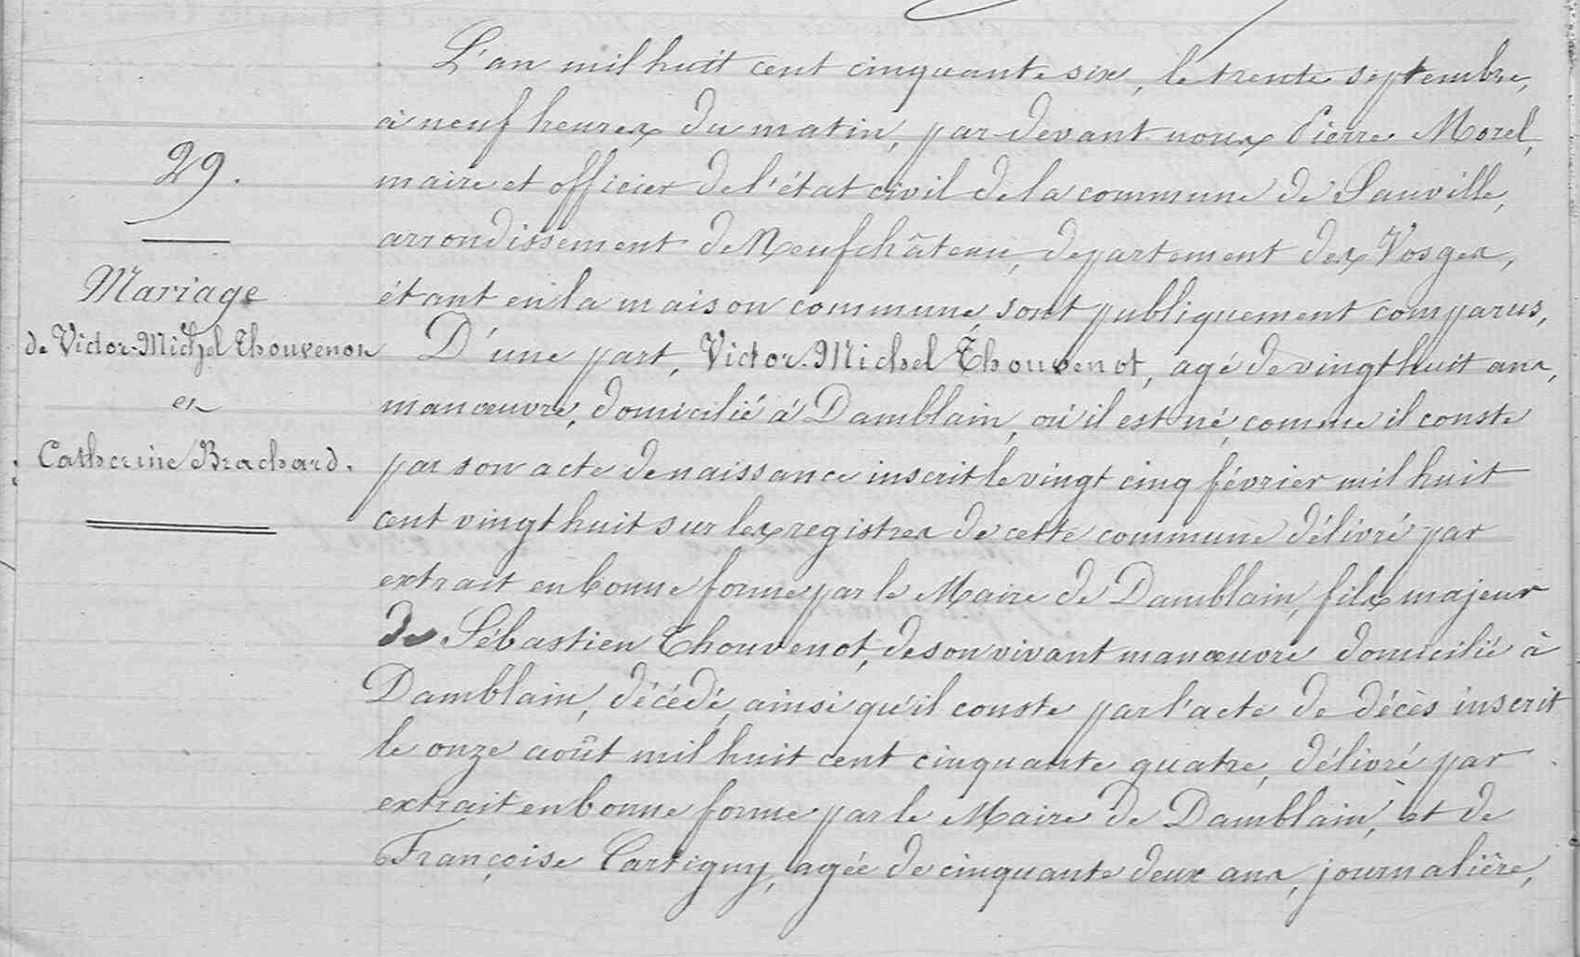 29.
Mariage
de Victor-Michel Thouvenon
et
Catherine Brachard.
L'an mil huit cent cinquante six, le trente septembre,
à neuf heures du matin, par devant nous Pierre Morel,
maire et officier de l'état civil de la commune de Sauville,
arrondissement de Neufchâteau, departement des Vosges,
étant en la maison commune, sont publiquement comparus,
D'une part, Victor-Michel Thouvenot, agé de vingt huit ans,
manœuvre, domicilié à Damblain, où il est né, comme il conste
par son acte de naissance inscrit le vingt cinq février mil huit
cent vingt huit sur les registres de cette commune délivré par
extrait en bonne forme par le Maire de Damblain, fils majeur
de Sébastien Thouvenot, de son vivant manœuvre domicilié à
Damblain, décédé, ainsi qu'il conste par l'acte de décès inscrit
le onze août mil huit cent cinquante quatre, délivré par
extrait en bonne forme par le Maire de Damblain, et de
Françoise Cartigny, agée de cinquante deux ans, journalière,